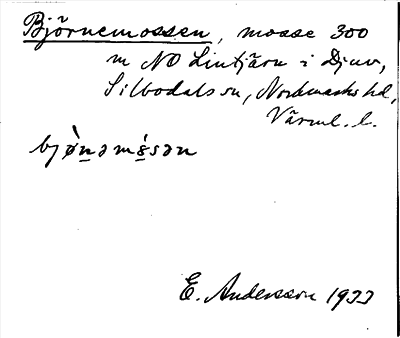 Björnemossen, mosse 300
m NO Lintjärn i Djuv,
Silbodals sn, Nordmarks hd,
Värml. l.
bjø̀nəmósən
E. Andersson 1933